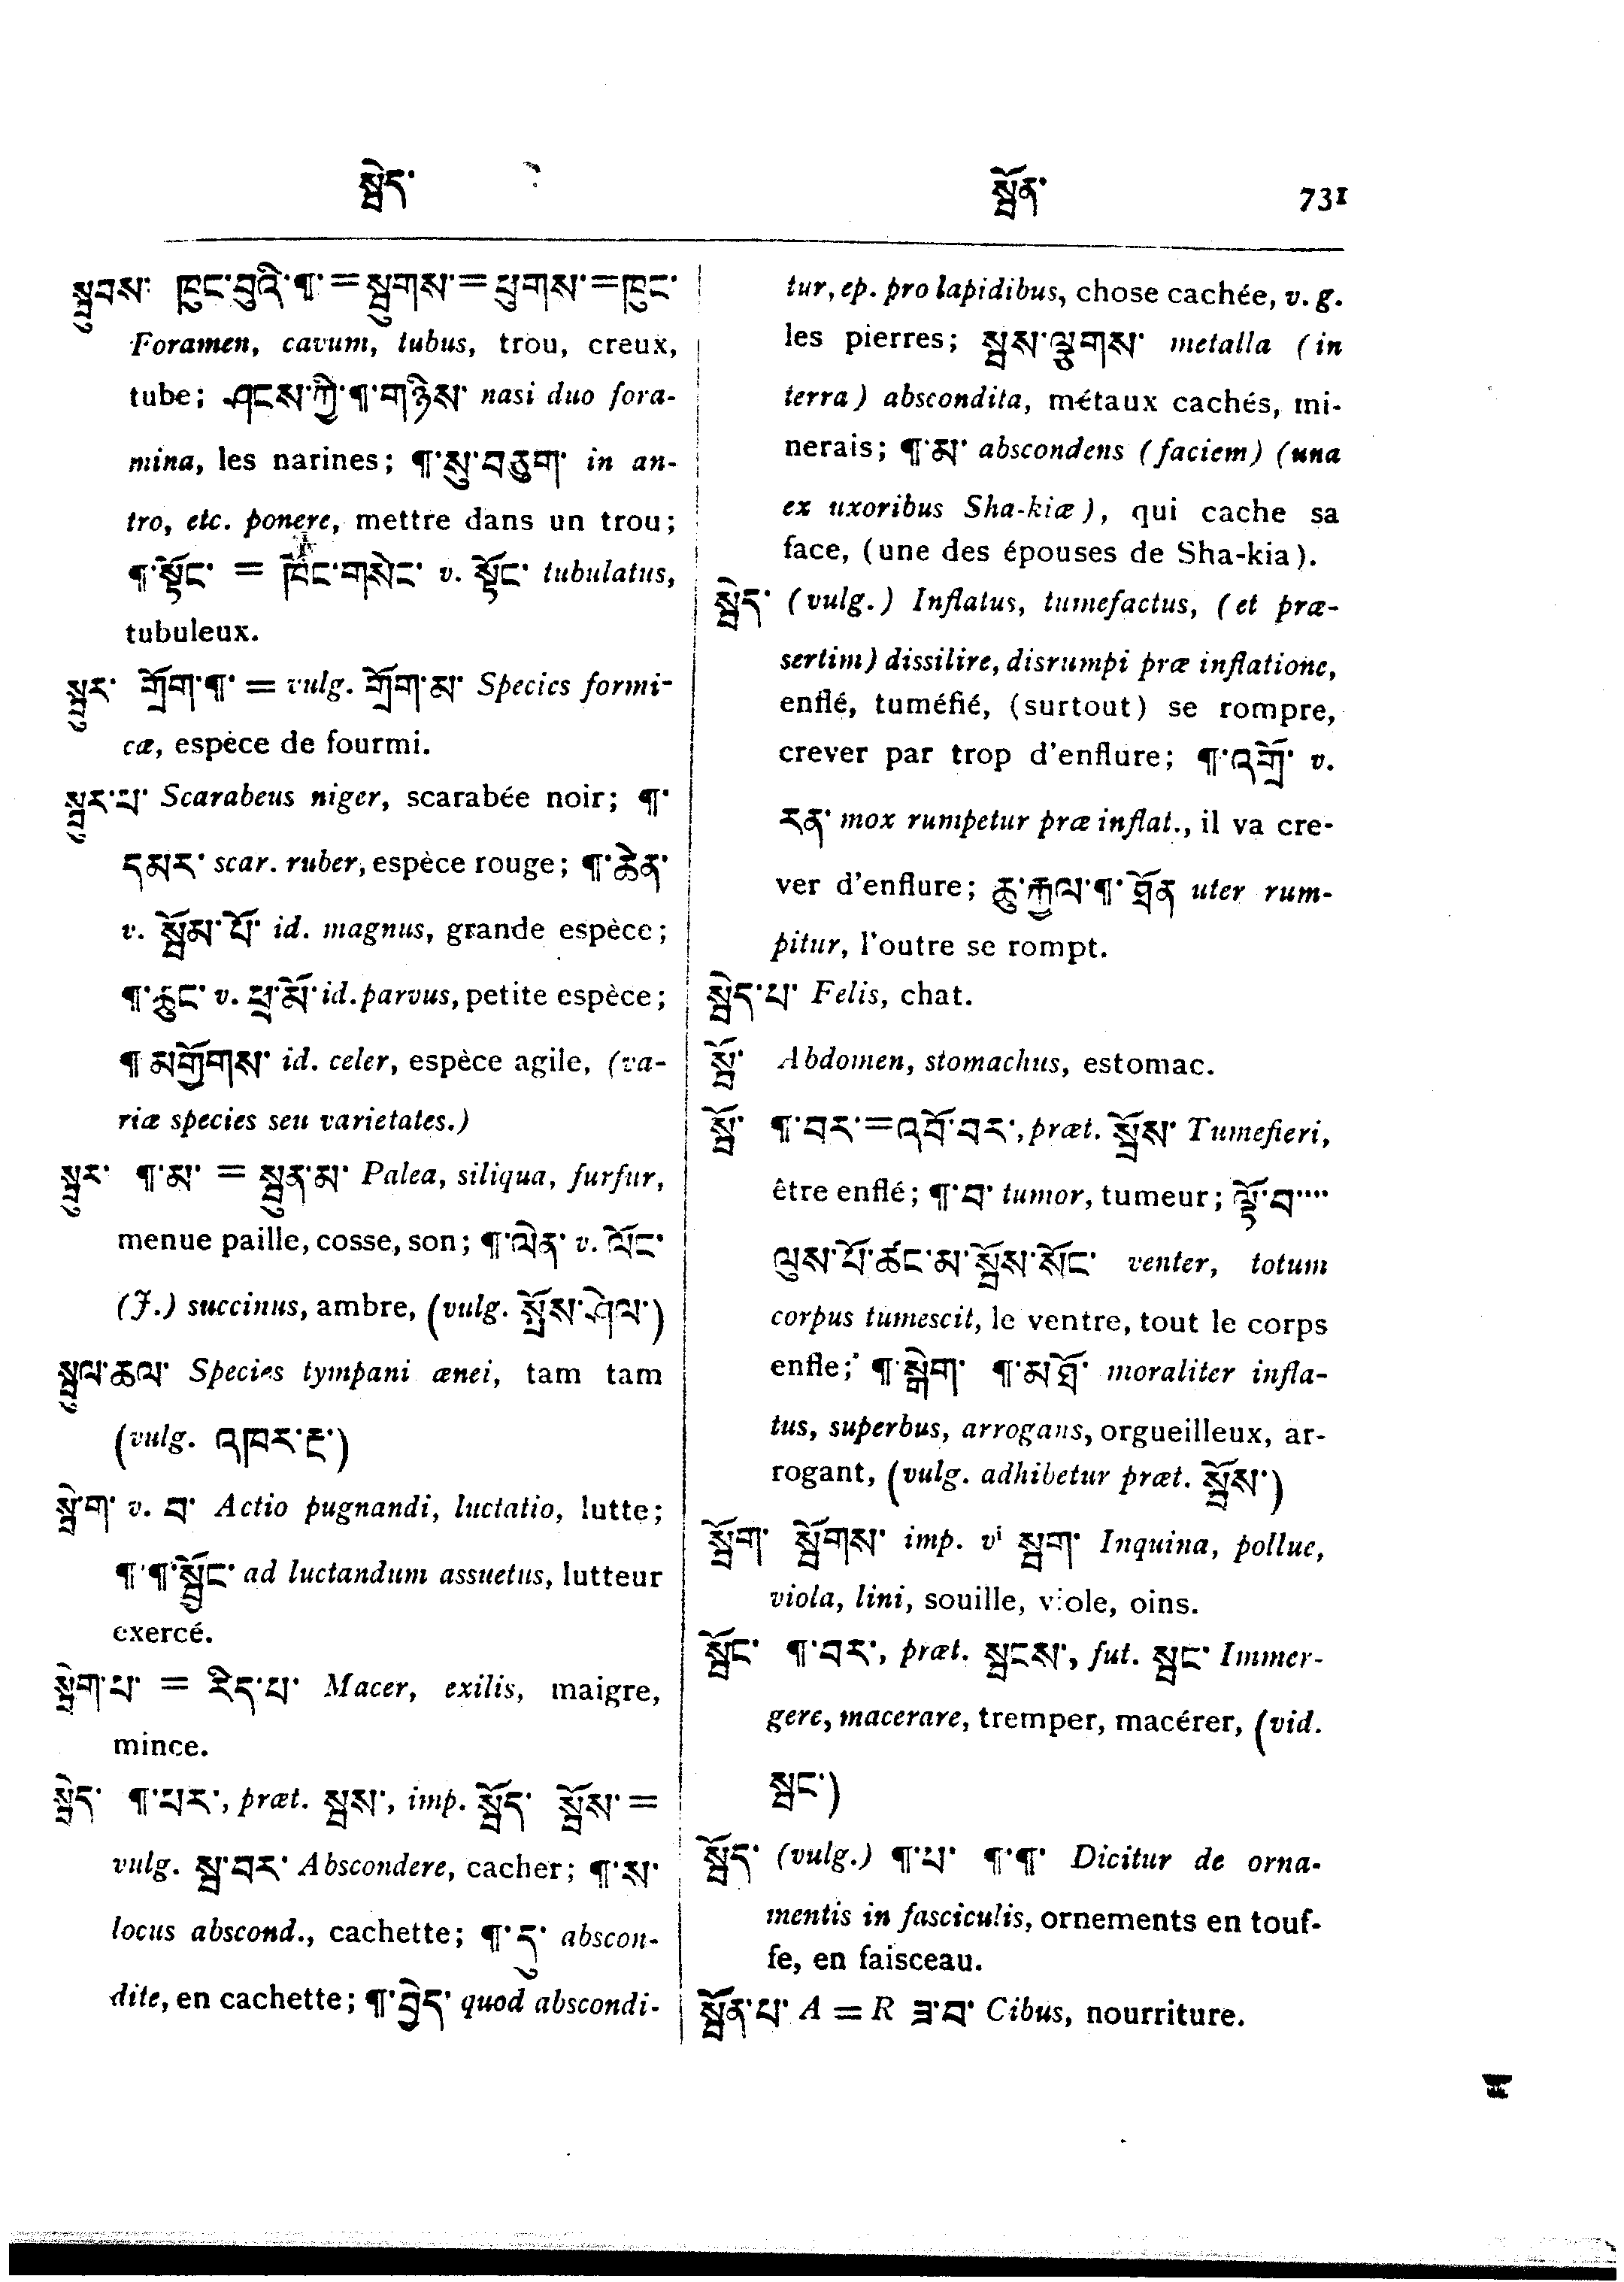 སྦེད་ སྦོན་ 731
སྦུབས་ ཁུང་བུའི་¶་=སྦུགས་=ཕུགས་=ཁུང་
Foramen, cavum, tubus, trou, creux,
tube; ཤངས་ཀྱི་¶་གཉིས་ nasi duo fora-
mina, les narines; ¶་སུ་བཅུག་ in an-
tro, etc. ponere, mettre dans un trou;
¶་སྟོང་ = ཁོང་གསེང་ v. སྟོང་ tubulatus,
tubuleux.
སྦུར་ གྲོག་¶་ = vulg. གྲོག་མ་ Species formi-
cæ, espèce de fourmi.
སྦུར་པ་ Scarabeus niger, scarabée noir; ¶་
དམར་ scar. ruber, espèce rouge; ¶་ཆེན་
v. སྦོམ་པོ་ id. magnus, grande espèce;
¶་ཆུང་ v. ཕྲ་མོ་ id. parvus, petite espèce;
¶ མགྱོགས་ id. celer, espèce agile, (va-
riæ species seu varietates.)
སྦུར་ ¶་མ་ = སྦུན་མ་ Palea, siliqua, furfur,
menue paille, cosse, son; ¶་ལེན་ v. ལོང་
(J.) succinus, ambre, (vulg. སྤོས་ཤེལ་)
སྦུལ་ཆལ་ Species tympani ænei, tam tam
(vulg. འཁར་རྔ་)
སྦེ་ག་ v. བ་ Actio pugnandi, luctatio, lutte;
¶་¶་སྦྱོང་ ad luctandum assuetus, lutteur
exercé.
སྦེག་པ་ = རིད་པ་ Macer, exilis, maigre,
mince.
སྦེད་ ¶་པར་, præt. སྦས་, imp. སྦོད་ སྦོས་ =
vulg. སྦ་བར་ Abscondere, cacher; ¶་ས་
locus abscond., cachette; ¶་དུ་ abscon-
dite, en cachette; ¶་བྱེད་ quod abscondi-
tur, ep. pro lapidibus, chose cachée, v. g.
les pierres; སྦས་ལྕགས་ metalla (in
terra) abscondita, métaux cachés, mi-
nerais; ¶་མ་ abscondens (faciem) (una
ex uxoribus Sha-kiæ), qui cache sa
face, (une des épouses de Sha-kia).
སྦེད་ (vulg.) Inflatus, tumefactus, (et præ-
sertim) dissilire, disrumpi præ inflatione,
enflé, tuméfié, (surtout) se rompre,
crever par trop d'enflure; ¶་འགྲོ་ v.
རན་ mox rumpetur præ inflat., il va cre-
ver d'enflure; ཆུ་རྐྱལ་¶་ཐོན uter rum-
pitur, l'outre se rompt.
སྦེད་པ་ Felis, chat.
སྦོ་ Abdomen, stomachus, estomac.
སྦོ་ ¶་བར་=འབོ་བར་, præt. སྦོས་ Tumefieri,
être enflé; ¶་བ་ tumor, tumeur; ལྟོ་བ་····
ལུས་པོ་ཚང་མ་སྦོས་སོང་ venter, totum
corpus tumescit, le ventre, tout le corps
enfle; ¶་སྒྲེག་ ¶་མཐོ་ moraliter infla-
tus, superbus, arrogans, orgueilleux, ar-
rogant, (vulg. adhibetur præt. སྦོས་)
སྦོག་ སྦོགས་ imp. vi སྦག་ Inquina, pollue,
viola, lini, souille, viole, oins.
སྦོང་ ¶་བར་, præt. སྦངས་, fut. སྦང་ Immer-
gere, macerare, tremper, macérer, (vid.
སྦང་)
སྦོད་ (vulg.) ¶་པ་ ¶་¶་ Dicitur de orna-
mentis in fasciculis, ornements en touf-
fe, en faisceau.
སྦོན་པ་ A = R ཟ་བ་ Cibus, nourriture.